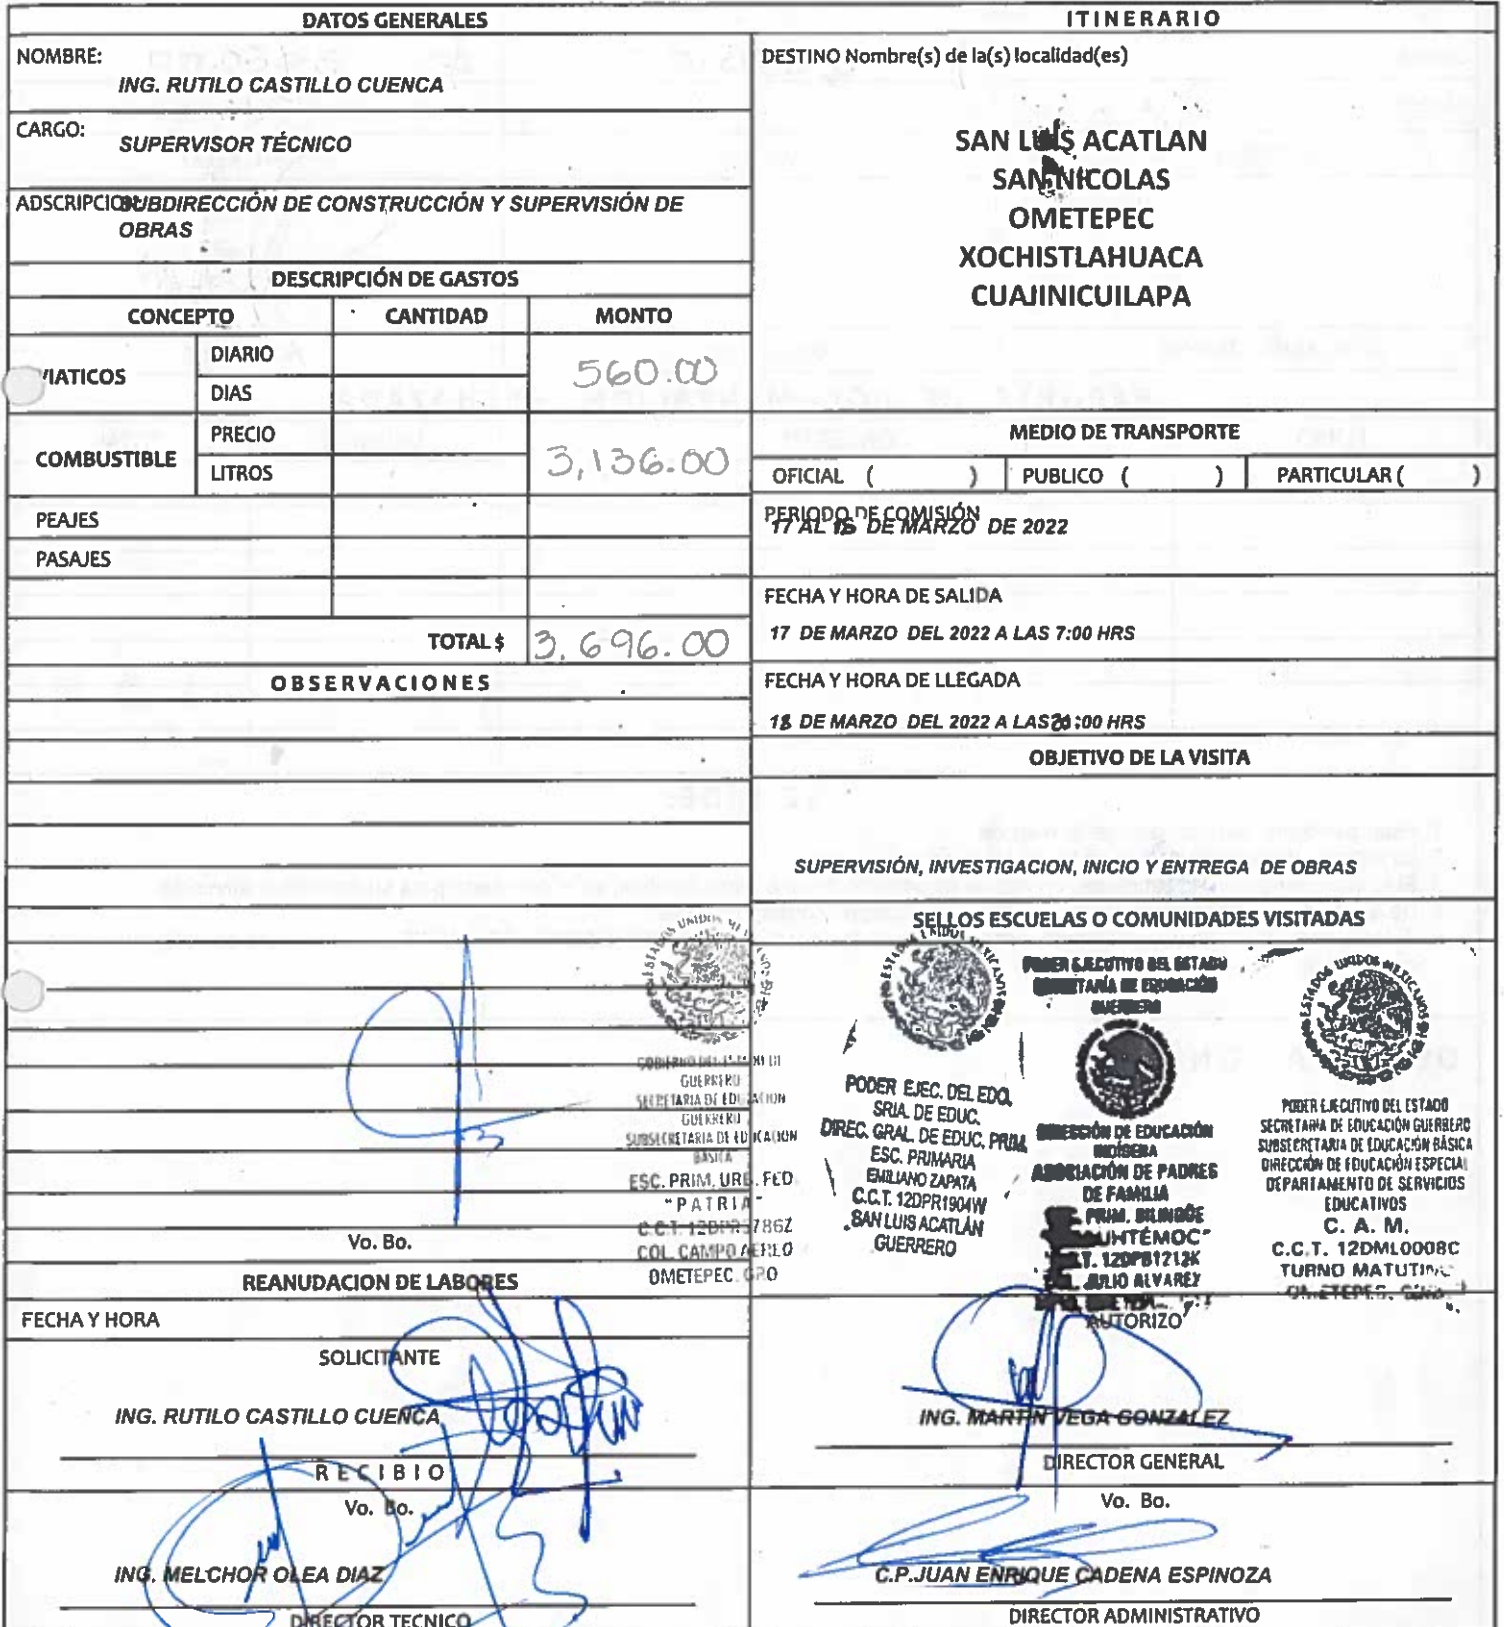 DATOS GENERALES
NOMBRE:
ING. RUTILO CASTILLO CUENCA
CARGO:
SUPERVISOR TÉCNICO
ADSCRIPCION:
SUBDIRECCIÓN DE CONSTRUCCIÓN Y SUPERVISIÓN DE
OBRAS
DESCRIPCIÓN DE GASTOS
CONCEPTO CANTIDAD MONTO
VIATICOS
DIARIO
DIAS
560.00
COMBUSTIBLE
PRECIO
LITROS
3,136.00
PEAJES
PASAJES
TOTAL $ 3,696.00
OBSERVACIONES
Vo. Bo.
REANUDACION DE LABORES
FECHA Y HORA
SOLICITANTE
ING. RUTILO CASTILLO CUENCA
RECIBIO
Vo. Bo.
ING. MELCHOR OLEA DIAZ
DIRECTOR TECNICO
ITINERARIO
DESTINO Nombre(s) de la(s) localidad(es)
SAN LUIS ACATLAN
SAN NICOLAS
OMETEPEC
XOCHISTLAHUACA
CUAJINICUILAPA
MEDIO DE TRANSPORTE
OFICIAL ( ) PUBLICO ( ) PARTICULAR ( )
PERIODO DE COMISIÓN
17 AL DE MARZO DE 2022
FECHA Y HORA DE SALIDA
17 DE MARZO DEL 2022 A LAS 7:00 HRS
FECHA Y HORA DE LLEGADA
18 DE MARZO DEL 2022 A LAS :00 HRS
OBJETIVO DE LA VISITA
SUPERVISIÓN, INVESTIGACION, INICIO Y ENTREGA DE OBRAS
SELLOS ESCUELAS O COMUNIDADES VISITADAS
GOBIERNO DEL ESTADO DE
GUERRERO
SECRETARIA DE EDUCACION
GUERRERO
SUBSECRETARIA DE EDUCACION
BASICA
ESC. PRIM. URB. FED
"PATRIA"
C.C.T.
COL. CAMPO AEREO
OMETEPEC, GRO
ESTADOS UNIDOS MEXICANOS
PODER EJEC. DEL EDO.
SRIA. DE EDUC.
DIREC. GRAL. DE EDUC. PRIM.
ESC. PRIMARIA
EMILIANO ZAPATA
C.C.T. 12DPR1904W
SAN LUIS ACATLÁN
GUERRERO
PODER EJECUTIVO DEL ESTADO
SECRETARÍA DE EDUCACIÓN
GUERRERO
DIRECCIÓN DE EDUCACIÓN
INDÍGENA
ASOCIACIÓN DE PADRES
DE FAMILIA
PRIM. BILINGÜE
UHTÉMOC"
T. 12DPB1212K
JULIO ALVAREZ
ESTADOS UNIDOS MEXICANOS
PODER EJECUTIVO DEL ESTADO
SECRETARIA DE EDUCACIÓN GUERRERO
SUBSECRETARIA DE EDUCACIÓN BÁSICA
DIRECCIÓN DE EDUCACIÓN ESPECIAL
DEPARTAMENTO DE SERVICIOS
EDUCATIVOS
C. A. M.
C.C.T. 12DML0008C
TURNO MATUTINO
OMETEPEC,
AUTORIZO
ING. MARTIN VEGA GONZALEZ
DIRECTOR GENERAL
Vo. Bo.
C.P.JUAN ENRIQUE CADENA ESPINOZA
DIRECTOR ADMINISTRATIVO